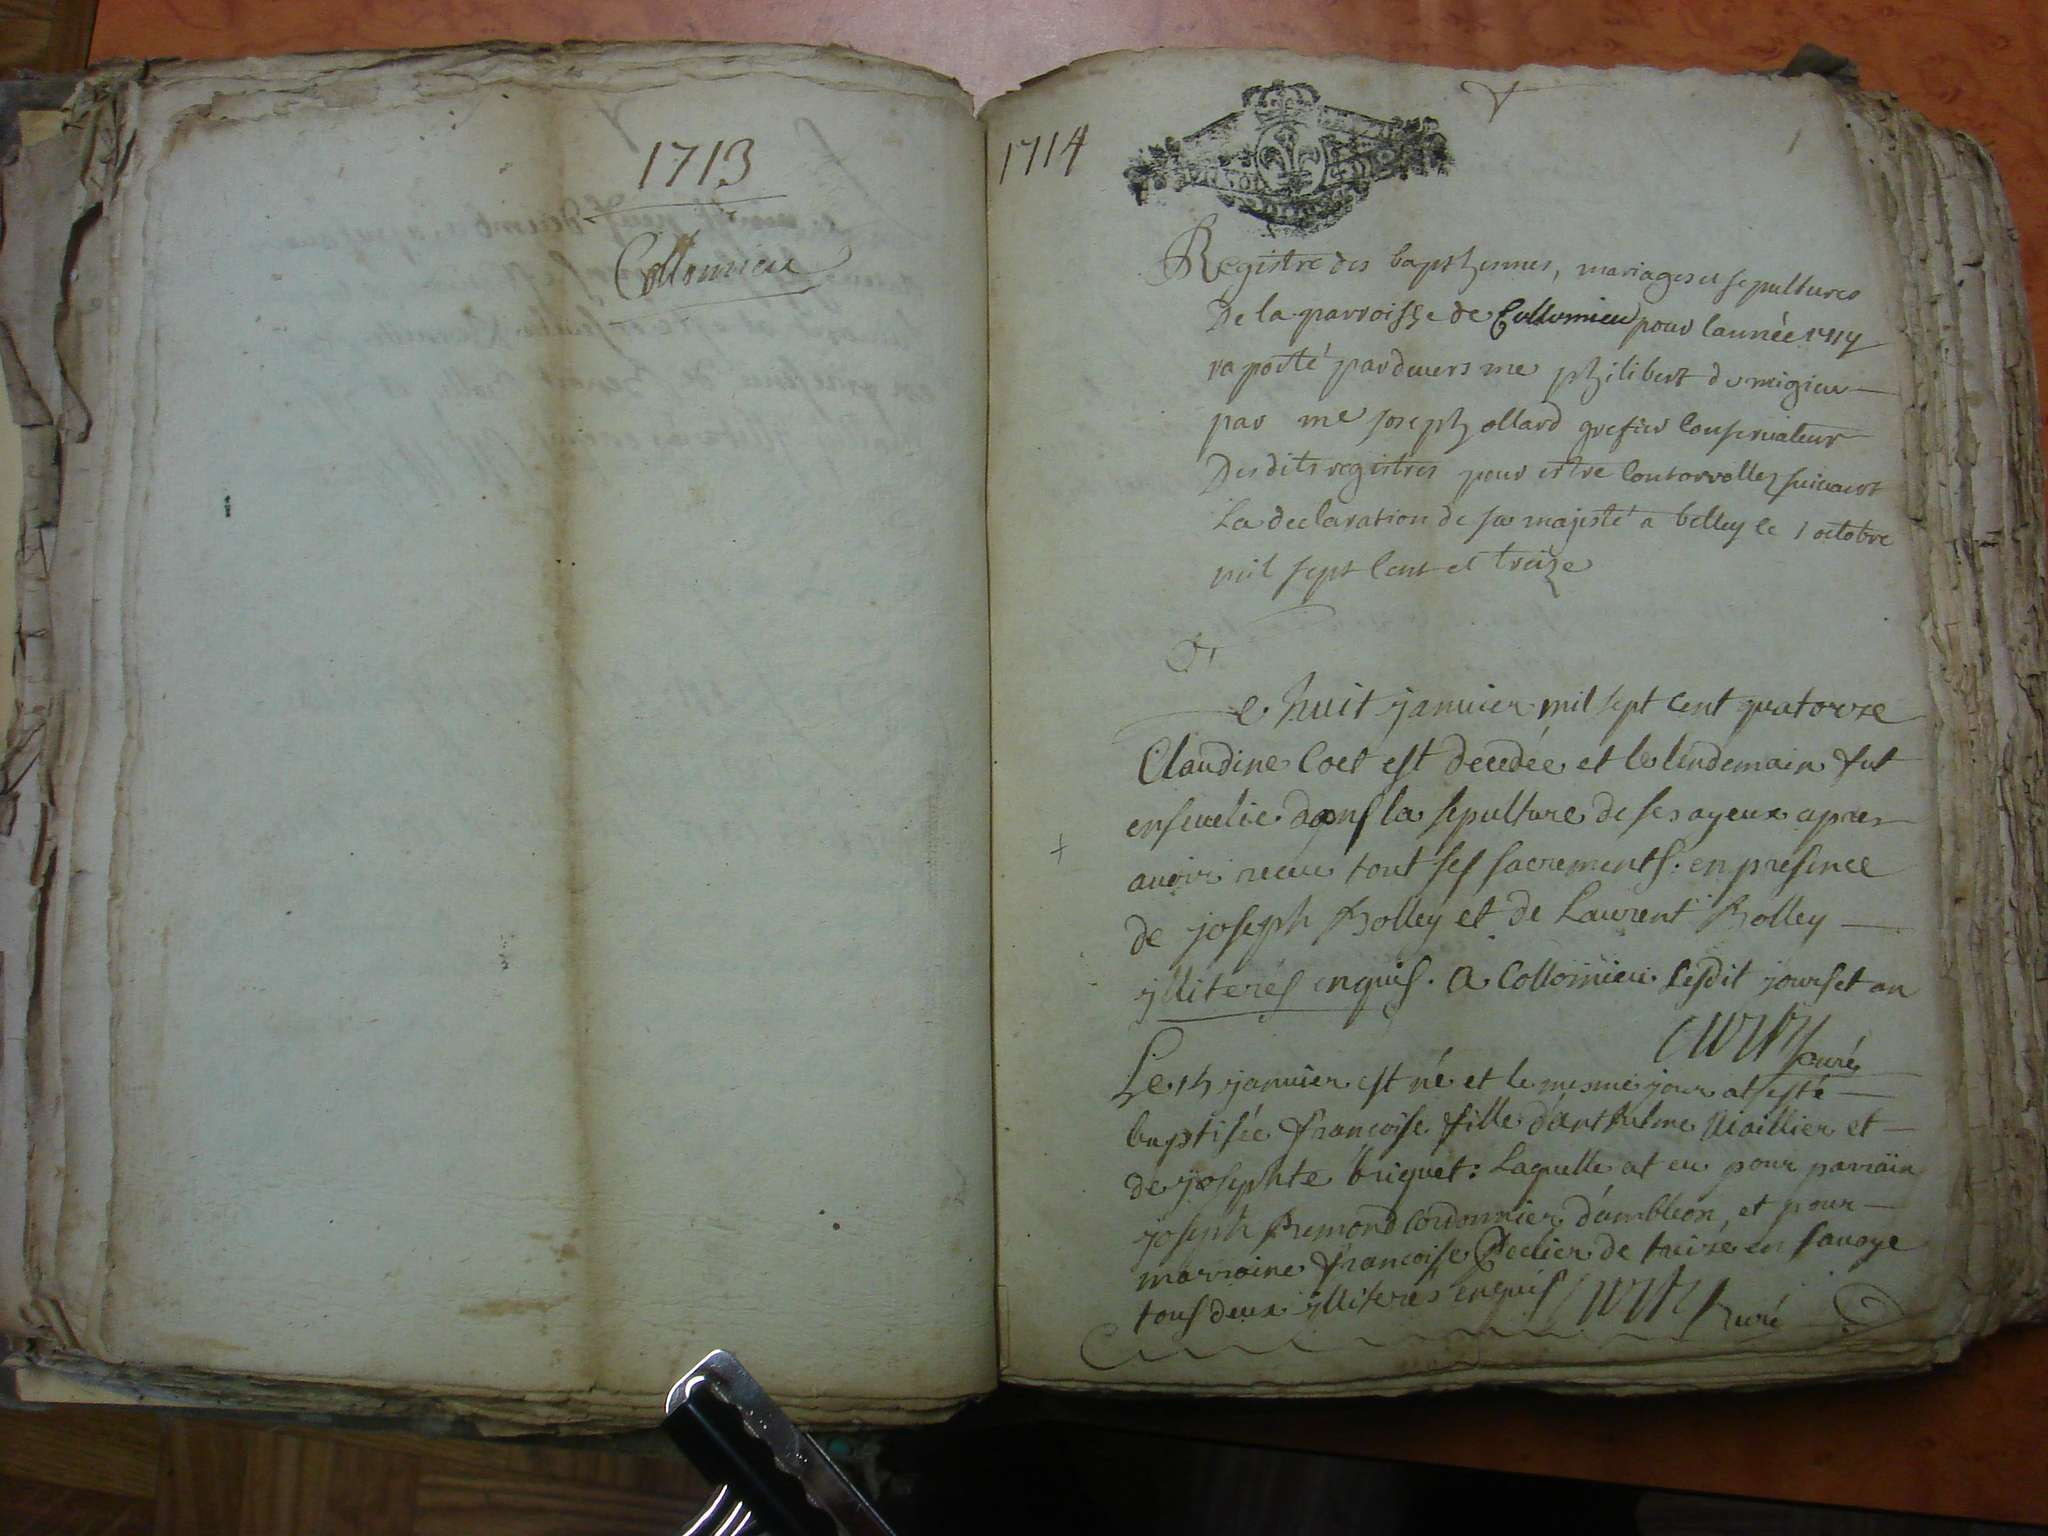 1713
Collomieu
1714
1
Registre des bapthemes, mariages et sepultures
De la parroisse de Collomieu pour lannée 1714
raporté pardevers me philibert de migieu
par me joseph ollard grefier conservateur
Desdits registres pour estre controrollez suivant
La declaration de sa majesté a belley le 1 octobre
mil sept cent et treize
Le huit janvier mil sept cent quatorze
Claudine Coet est decedée et le lendemain fut
ensevelie dans la sepulture de ses ayeux apres
avoir receu tout ses sacrements. en presence
de joseph Bolley et de Laurent Bolley
illiterés enquis. a Collomieu lesdit jourset an
curé
Le 15 janvier est né et le mesme jour at esté
baptisée francoise fille d'anthelme Maillier et
de josephte briquet: Laquelle at eu pour parrain
joseph Bemond cordonnier d'ambleon, et pour
marraine francoise de treize en savoye
tous deux illiterés enquis
curé